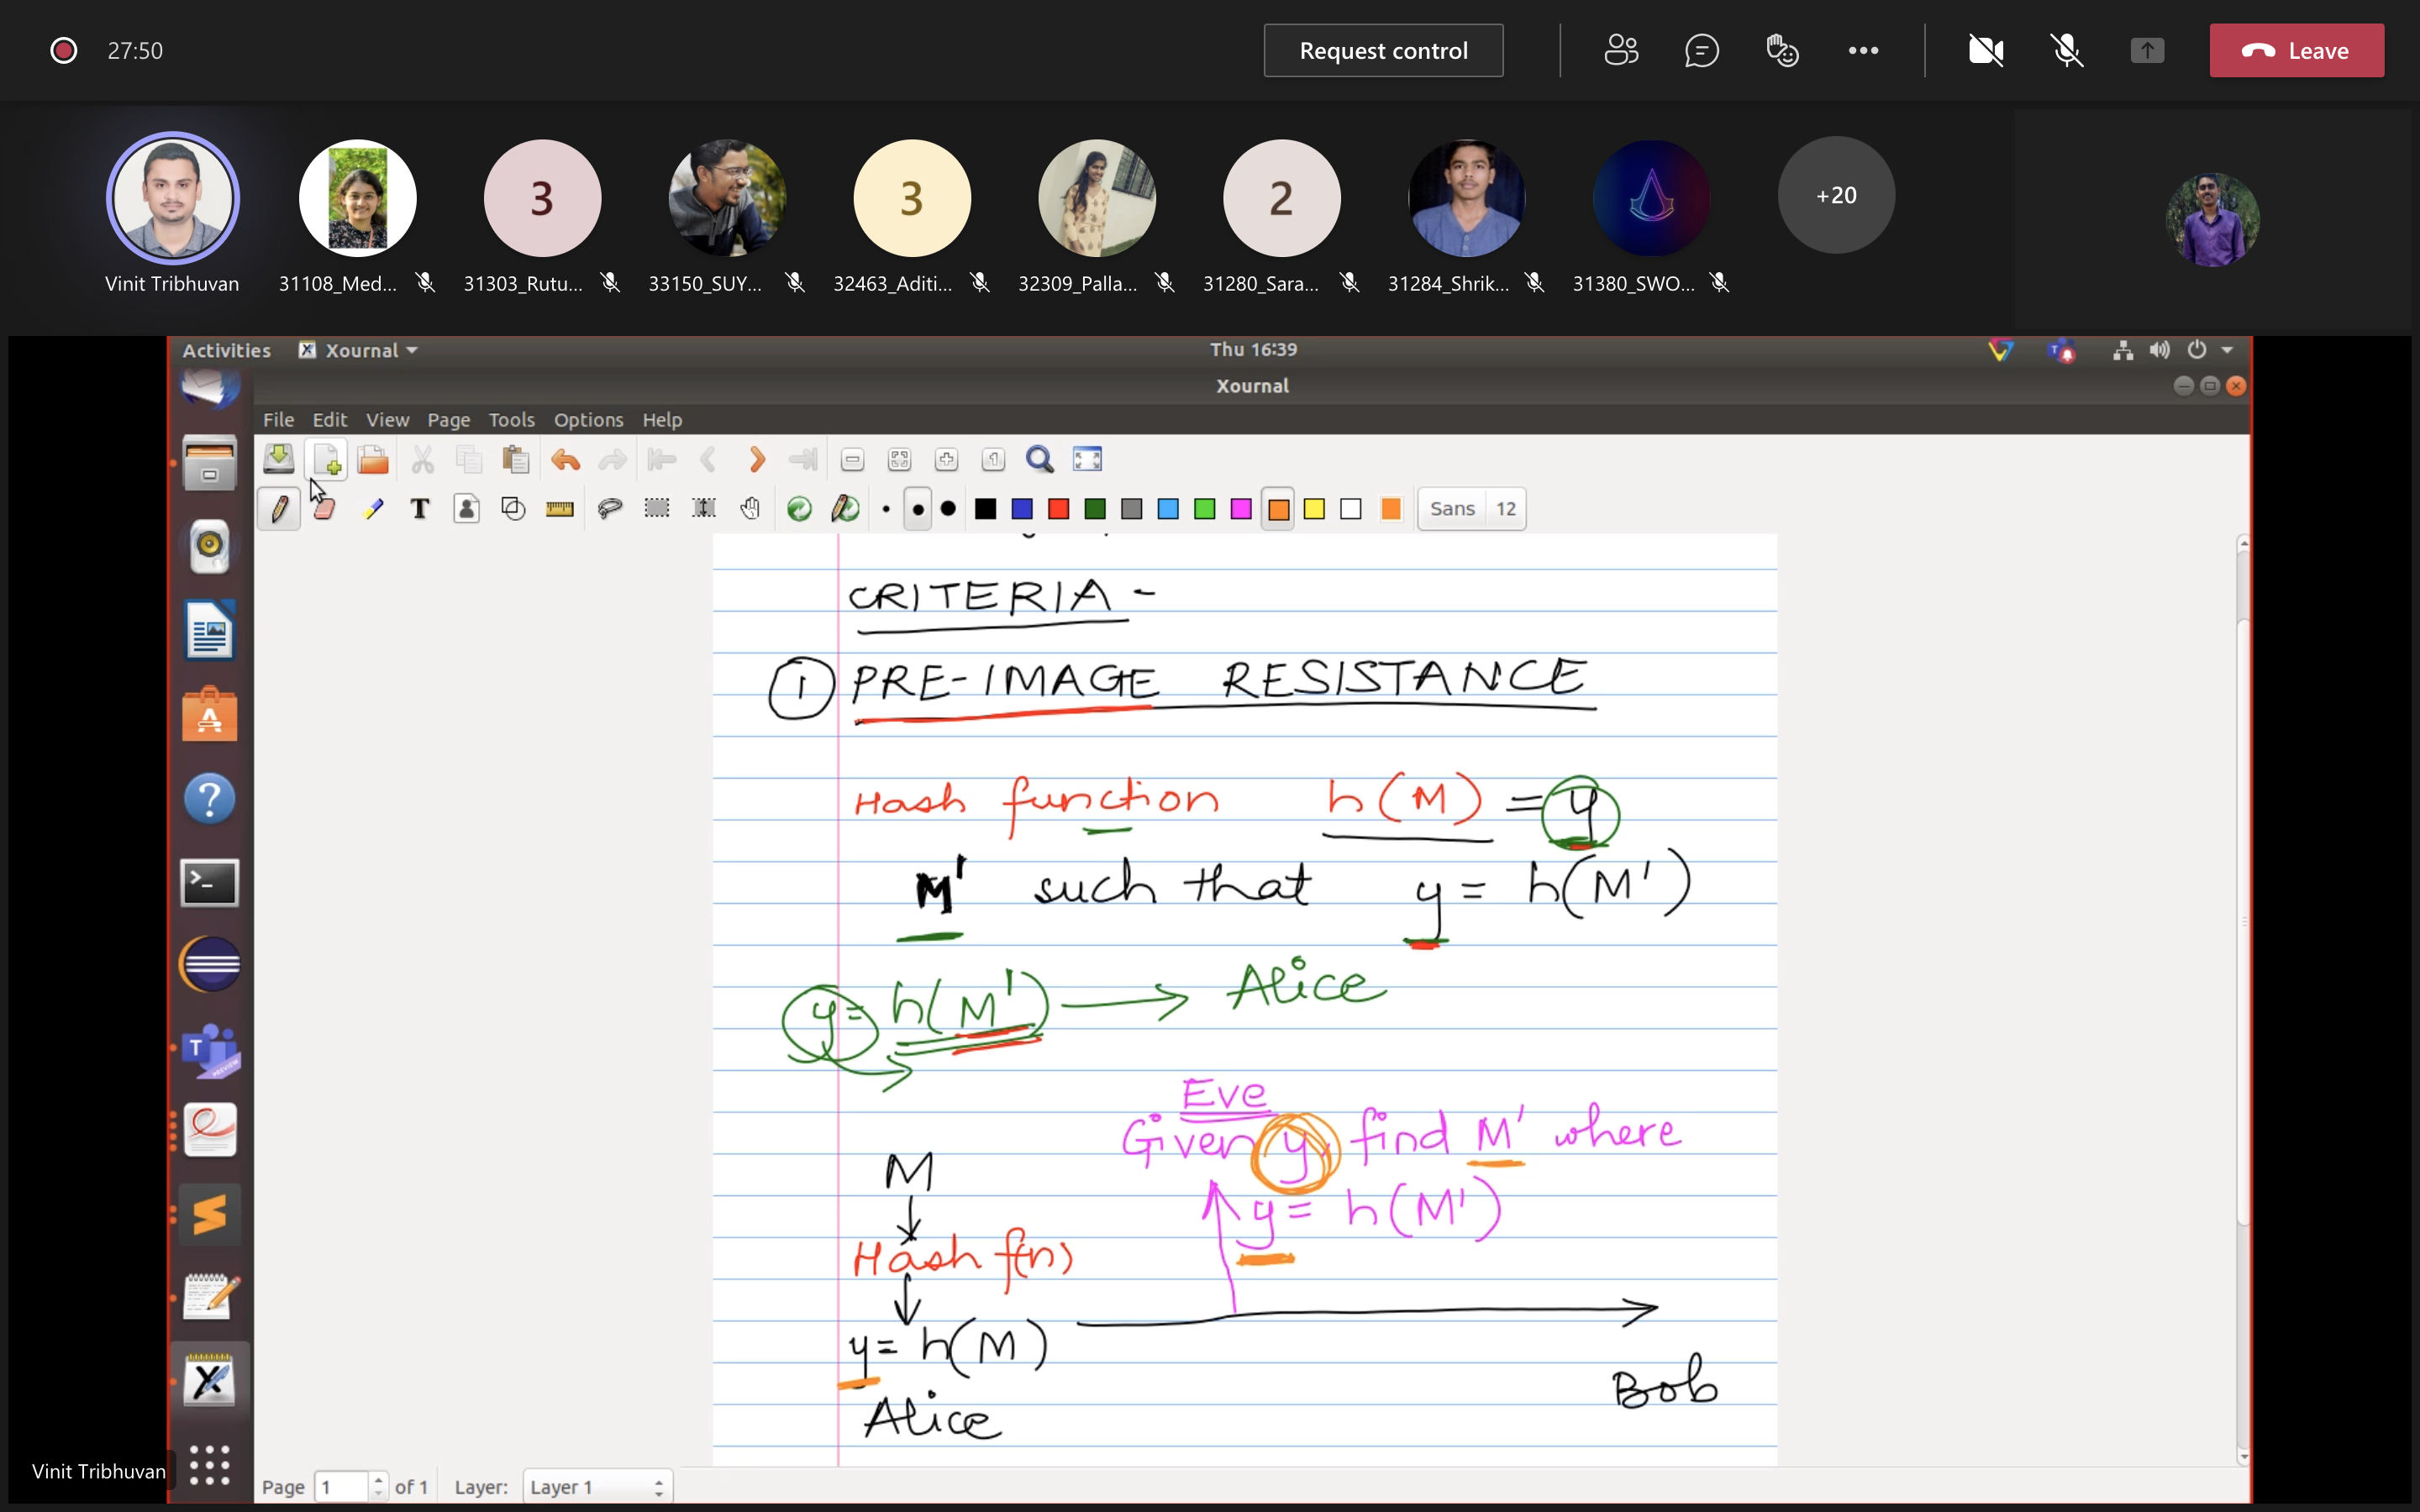 27:50 Request control Leave
3 3 2 +20
Vinit Tribhuvan 31108_Med... 31303_Rutu... 33150_SUY... 32463_Aditi... 32309_Palla... 31280_Sara... 31284_Shrik... 31380_SWO...
Activities Xournal Thu 16:39
Xournal
File Edit View Page Tools Options Help
Sans 12
CRITERIA -
1 PRE-IMAGE RESISTANCE
Hash function h(M) = y
M' such that y = h(M')
y = h(M') → Alice
Eve
Given y, find M' where
M
y = h(M')
Hash f(n)
y = h(M)
Bob
Alice
Vinit Tribhuvan
Page 1 of 1 Layer: Layer 1